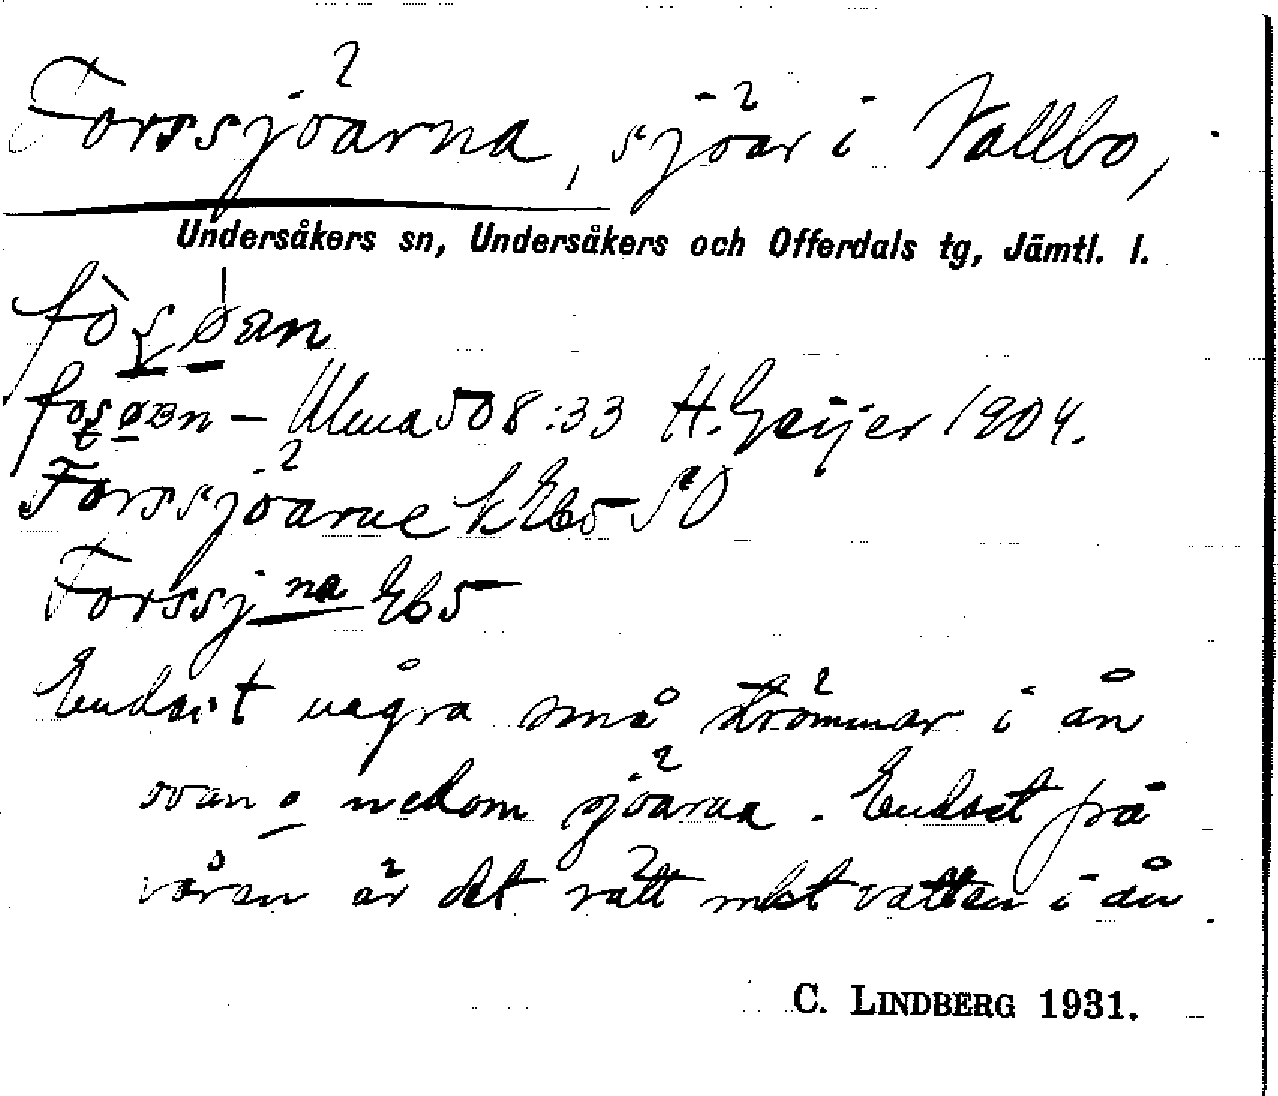 Forssjöarna, sjöar i Vallbo,
Undersåkers sn, Undersåkers och Offerdals tg, Jämtl. l.
– Ulma 508:33 H. Geijer 1904.
Forssjöarne k Eb5 SO
Forssjna Eb5
Endast några små strömmar i ån
ovan o nedom sjöarna. Endast på
våren är det rätt mkt vatten i ån.
C. LINDBERG 1931.